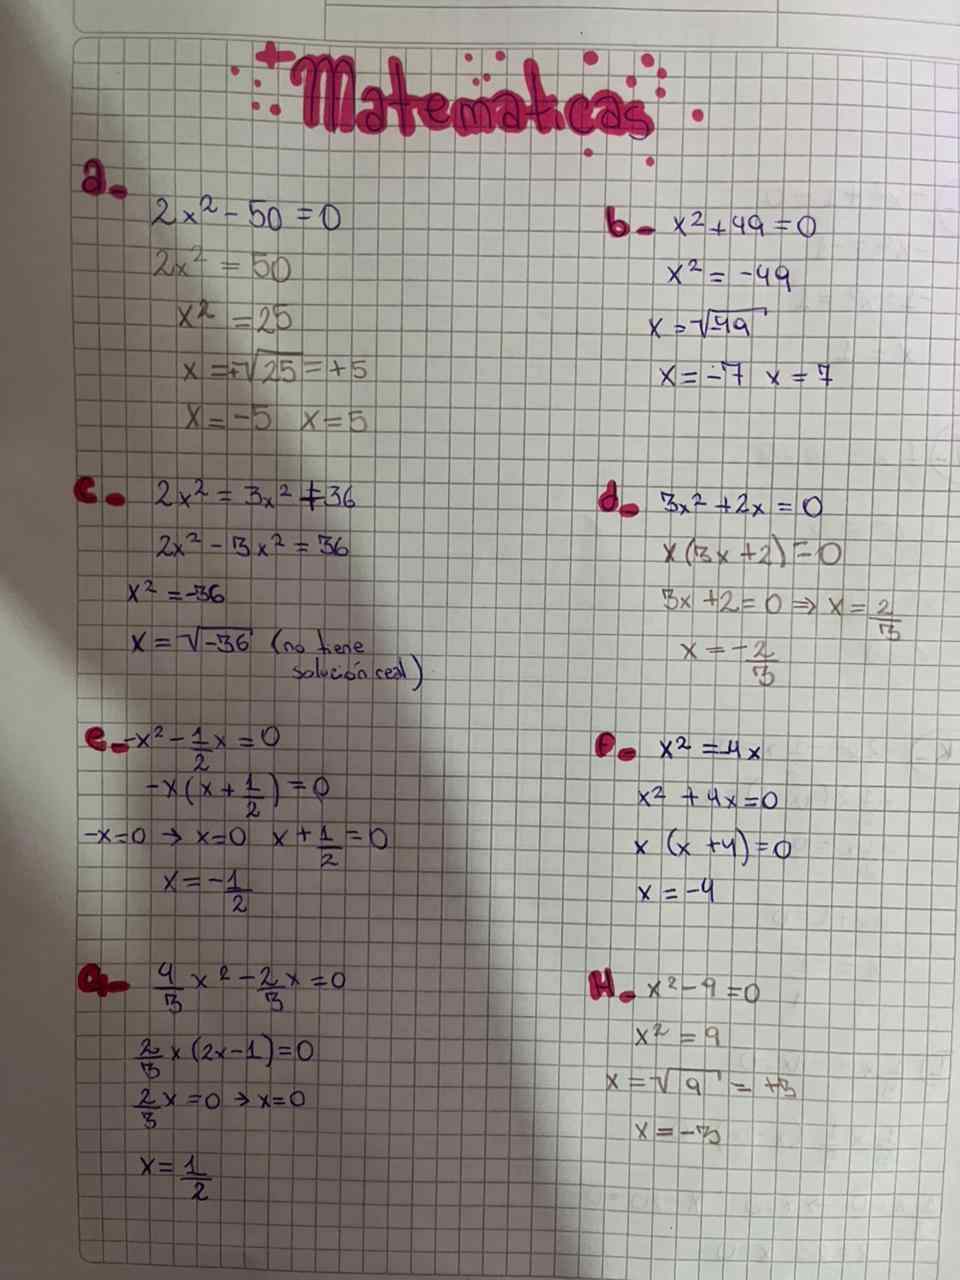 Matematicas
a-
2x² - 50 = 0
2x² = 50
x² = 25
x = +√25 = +5
x = -5 x = 5
b- x² + 49 = 0
x² = -49
x = √-49
x = -7 x = 7
c- 2x² = 3x² + 36
2x² - 3x² = 36
x² = -36
x = √-36 (no tiene
solución real)
d- 3x² + 2x = 0
x(3x + 2) = 0
3x + 2 = 0 ⇒ x = 2/3
x = -2/3
e- -x² - 1/2x = 0
-x(x + 1/2) = 0
-x = 0 → x = 0 x + 1/2 = 0
x = -1/2
f- x² = -4x
x² + 4x = 0
x (x + 4) = 0
x = -4
g- 4/3 x² - 2/3 x = 0
2/3 x (2x - 1) = 0
2/3 x = 0 → x = 0
x = 1/2
H- x² - 9 = 0
x² = 9
x = √9 = +3
x = -3